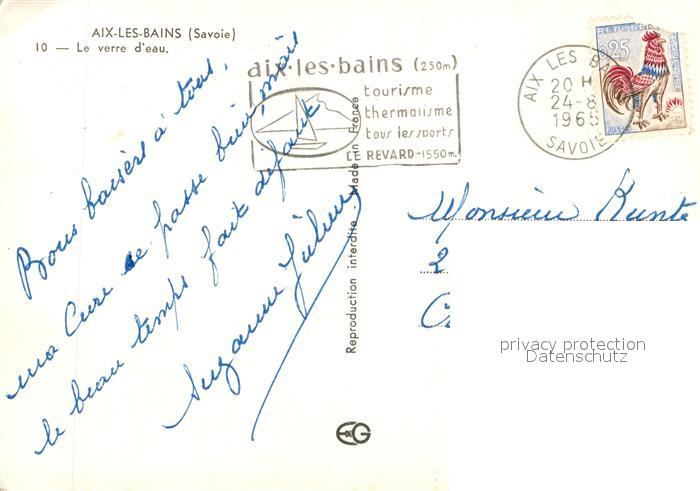 AIX-LES-BAINS (Savoie)
10 — Le verre d'eau.
Bons baisers à tous,
ma Cure se passe bien, mais
le beau temps fait défaut
Suzanne Julien
aix·les·bains (250m)
tourisme
thermalisme
tous les sports
LE REVARD-1550m.
AIX LES BA
20 H
24-8
1965
SAVOIE
0,25
Reproduction interdite - Made in France
Monsieur Kuntz
2
C
privacy protection
Datenschutz